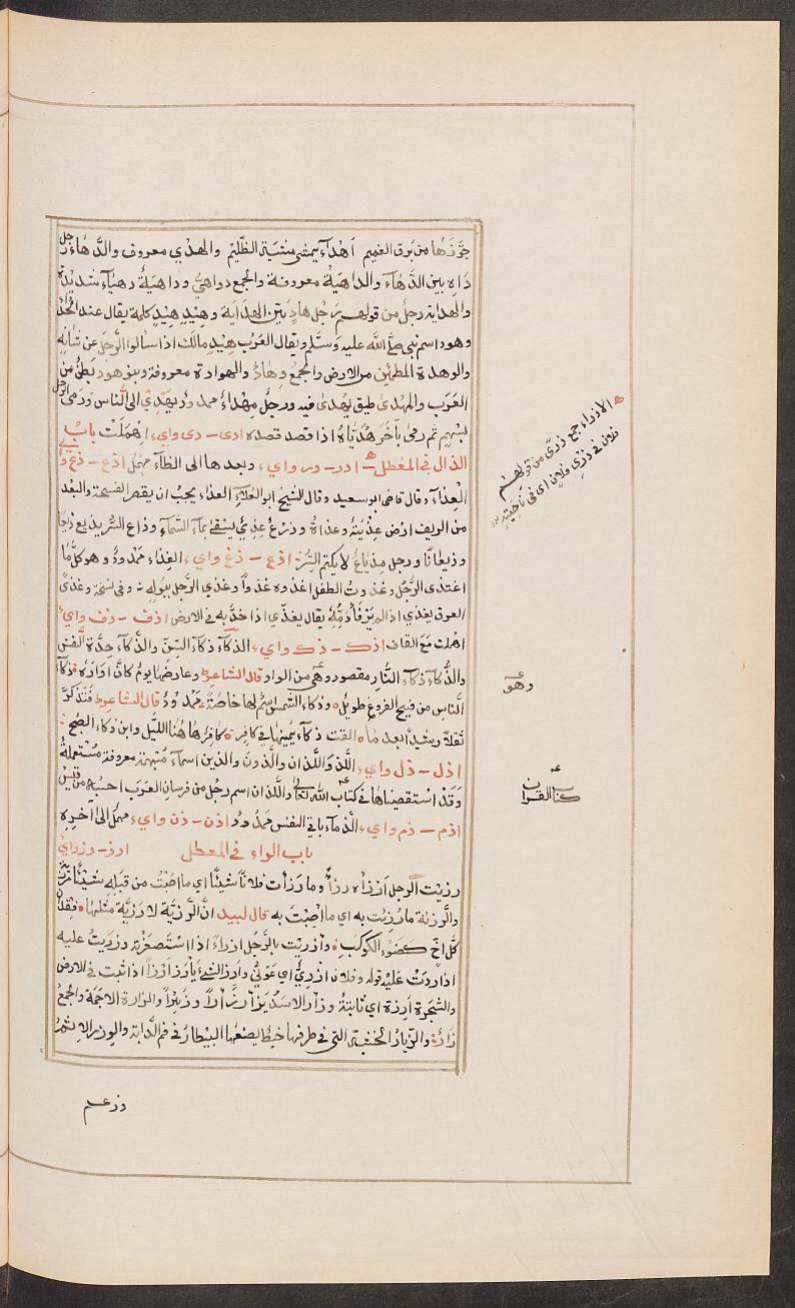 من برق الغميم اهدأ يمشي مشية الظليم والهدي معروف والدهاء رجل
داه بين الدهاء والداهية معروفة والجمع دواهي وداهية دهياء شديدة
والهداية رجل من قولهم رجل هاد بين الهداية وهيد هيد كلمة يقال عند
وهود اسم نبي صلى الله عليه وسلم ويقال العرب هيد مالك اذا سألوا الرجل عن شأنه
والوهدة المطمئن من الارض والجمع وهاد والهوادة معروفة وبنو هود بطن من
العرب والمهدى طبق يهدى فيه ورجل مهداء ممدود يهدي الى الناس ورمى الرجل
بسهم ثم رمى بأخر هدياه اذا قصد قصده ادى - دى واي، اهملت باب
الذال في المعطل ادر - در واي، وبعدها الى الظاء مهمل اذع - ذع وا
العذاء وقال قاضي ابو سعيد وقال الشيخ ابو العلاء العذاء يجب ان يقصر الفسحة والبعد
من الريف ارض عذية وعذاة وزرع عذي يسقى بماء السماء وذاع السر يذيع ذيعا
وذيعانا ورجل مذياع لا يكتم السر اذغ - ذغ واي، الغذاء ممدود وهو كل ما
اغتذى الرجل وغذوت الطفل اغذوه غذوا وغذي الرجل ببوله وفي نسخة وغذى
العرق يغذي اذا لم يرقأ دمه يقال يغذي اذا خد به في الارض اذف - ذف واي،
اهملت مع القاف اذك - ذك واي، الذكاء ذكاء السن والذكاء حدة النفس
والذكاء ذكاء النار مقصور وهى من الواو قال الشاعر وعارضها يوم كأن اواره ذكاء
الناس من فيح الفروغ طويل وذكاء الشمس اسم لها خاصة ممدود قال الشاعر فتذكرا
ثقلا رثيدا بعد ما القت ذكاء يمينها في كافر كافرها هنا الليل وابن ذكاء الصبح
اذل - ذل واي، اللذ واللذان والذون والذين اسماء مبهمة معروفة مستعملة
وقد استقصيناها في كتاب الله تعالى واللذان اسم رجل من فرسان العرب احسبه من قيس
اذم - ذم واي، الذماء باقي النفس ممدود اذن - ذن واي، مهمل الى اخره
باب الراء في المعطل ارز - رزواي
رزيت الرجل ارزاه رزأ وما رزأت فلانا شيئا اي ما اصبت من قبله شيئا
والرزية ما رزئت به اي ما اصبت به قال لبيد ان الرزية لا رزية مثلها فقدان
كل اخ كضوء الكوكب وازريت بالرجل ازراء اذا استصغرته وزريت عليه
اذا رددت عليه قوله وفلان ازري اي عوني وارز الشيء يأرز ارزا اذا ثبت في الارض
والشجرة ارزة اي ثابتة وزأر الاسد يزأر زأرا وزئيرا والزارة الاجمة والجمع
زأر والزيار الخشبة التي في طرفها خيط يضعها البيطار في فم الدابة والوزر الاثم
وزعم
الازراء جمع ذرى من قولهم
فلان في ذرى فلان اى في ناحيته
وهو
كتاب القران